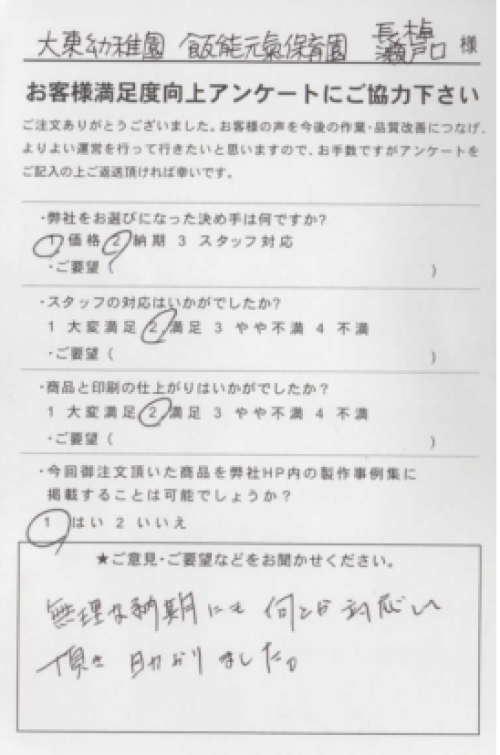 大東幼稚園 飯能元氣保育園 長棹 瀬戸口 様
お客様満足度向上アンケートにご協力下さい
ご注文ありがとうございました。お客様の声を今後の作業・品質改善につなげ、
よりよい運営を行って行きたいと思いますので、お手数ですがアンケートを
ご記入の上ご返送頂ければ幸いです。
・弊社をお選びになった決め手は何ですか?
1 価格 2 納期 3 スタッフ対応
・ご要望( )
・スタッフの対応はいかがでしたか?
1 大変満足 2 満足 3 やや不満 4 不満
・ご要望( )
・商品と印刷の仕上がりはいかがでしたか?
1 大変満足 2 満足 3 やや不満 4 不満
・ご要望( )
・今回御注文頂いた商品を弊社HP内の製作事例集に
掲載することは可能でしょうか?
1 はい 2 いいえ
★ご意見・ご要望などをお聞かせください。
無理な納期にも何とか対応し
頂き 助かりました。